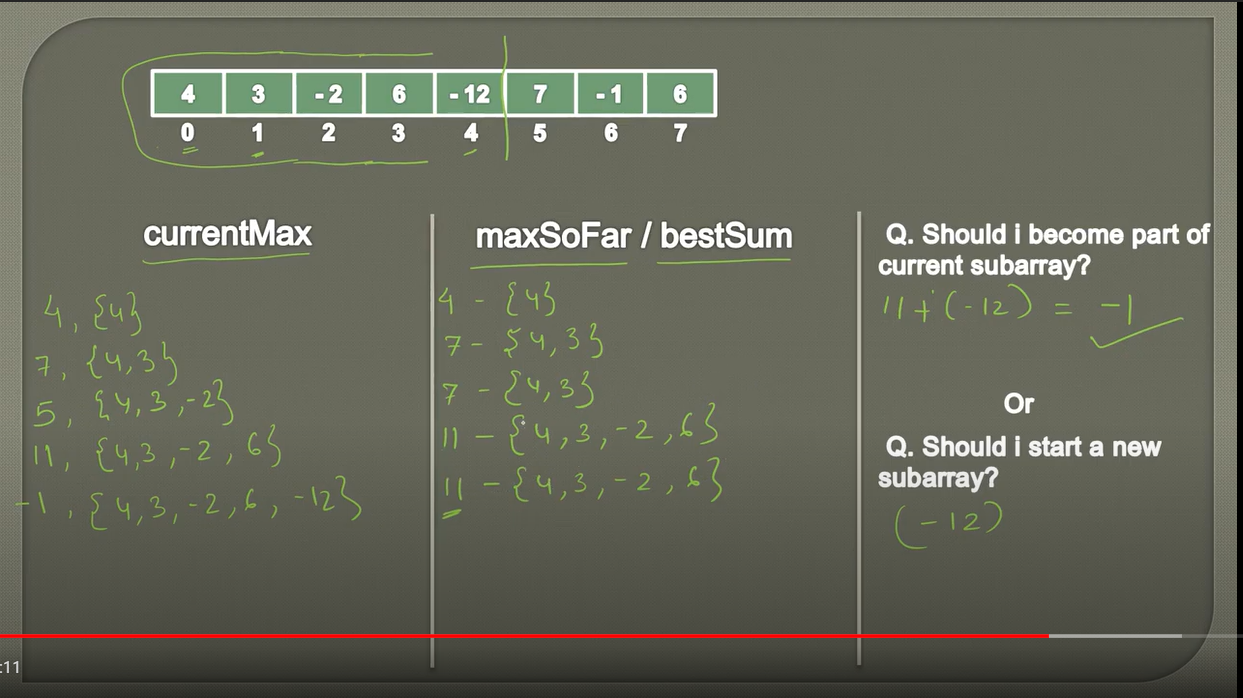 4 3 -2 6 -12 7 -1 6
0 1 2 3 4 5 6 7
currentMax
4, {4}
7, {4,3}
5, {4,3,-2}
11, {4,3,-2,6}
-1, {4,3,-2,6,-12}
maxSoFar / bestSum
4 - {4}
7 - {4,3}
7 - {4,3}
11 - {4,3,-2,6}
11 - {4,3,-2,6}
Q. Should i become part of
current subarray?
11+(-12) = -1
Or
Q. Should i start a new
subarray?
(-12)
:11